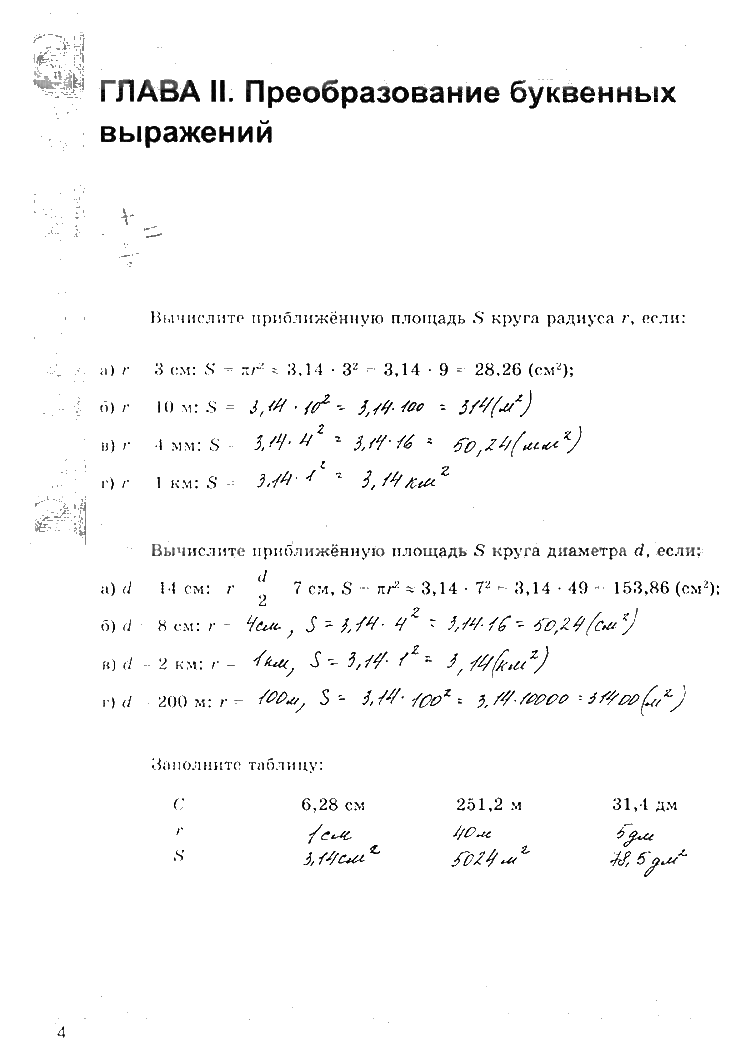 ГЛАВА II. Преобразование буквенных
выражений
+
=
÷
Вычислите приближённую площадь S круга радиуса r, если:
а) r 3 см: S = πr² ≈ 3,14 · 3² = 3,14 · 9 = 28,26 (см²);
б) r 10 м: S = 3,14 · 10² = 3,14·100 = 314(м²)
в) r 4 мм: S = 3,14· 4² = 3,14·16 = 50,24(мм²)
г) r 1 км: S = 3,14· 1² = 3,14 км²
Вычислите приближённую площадь S круга диаметра d, если:
а) d 14 см: r d/2 7 см, S = πr² ≈ 3,14 · 7² = 3,14 · 49 = 153,86 (см²);
б) d 8 см: r = 4см, S = 3,14· 4² = 3,14·16 = 50,24(см²)
в) d = 2 км: r = 1км, S = 3,14· 1² = 3,14(км²)
г) d 200 м: r = 100м, S = 3,14· 100² = 3,14·10000 = 31400(м²)
Заполните таблицу:
C 6,28 см 251,2 м 31,4 дм
r 1см 40м 5дм
S 3,14см² 5024м² 78,5дм²
4